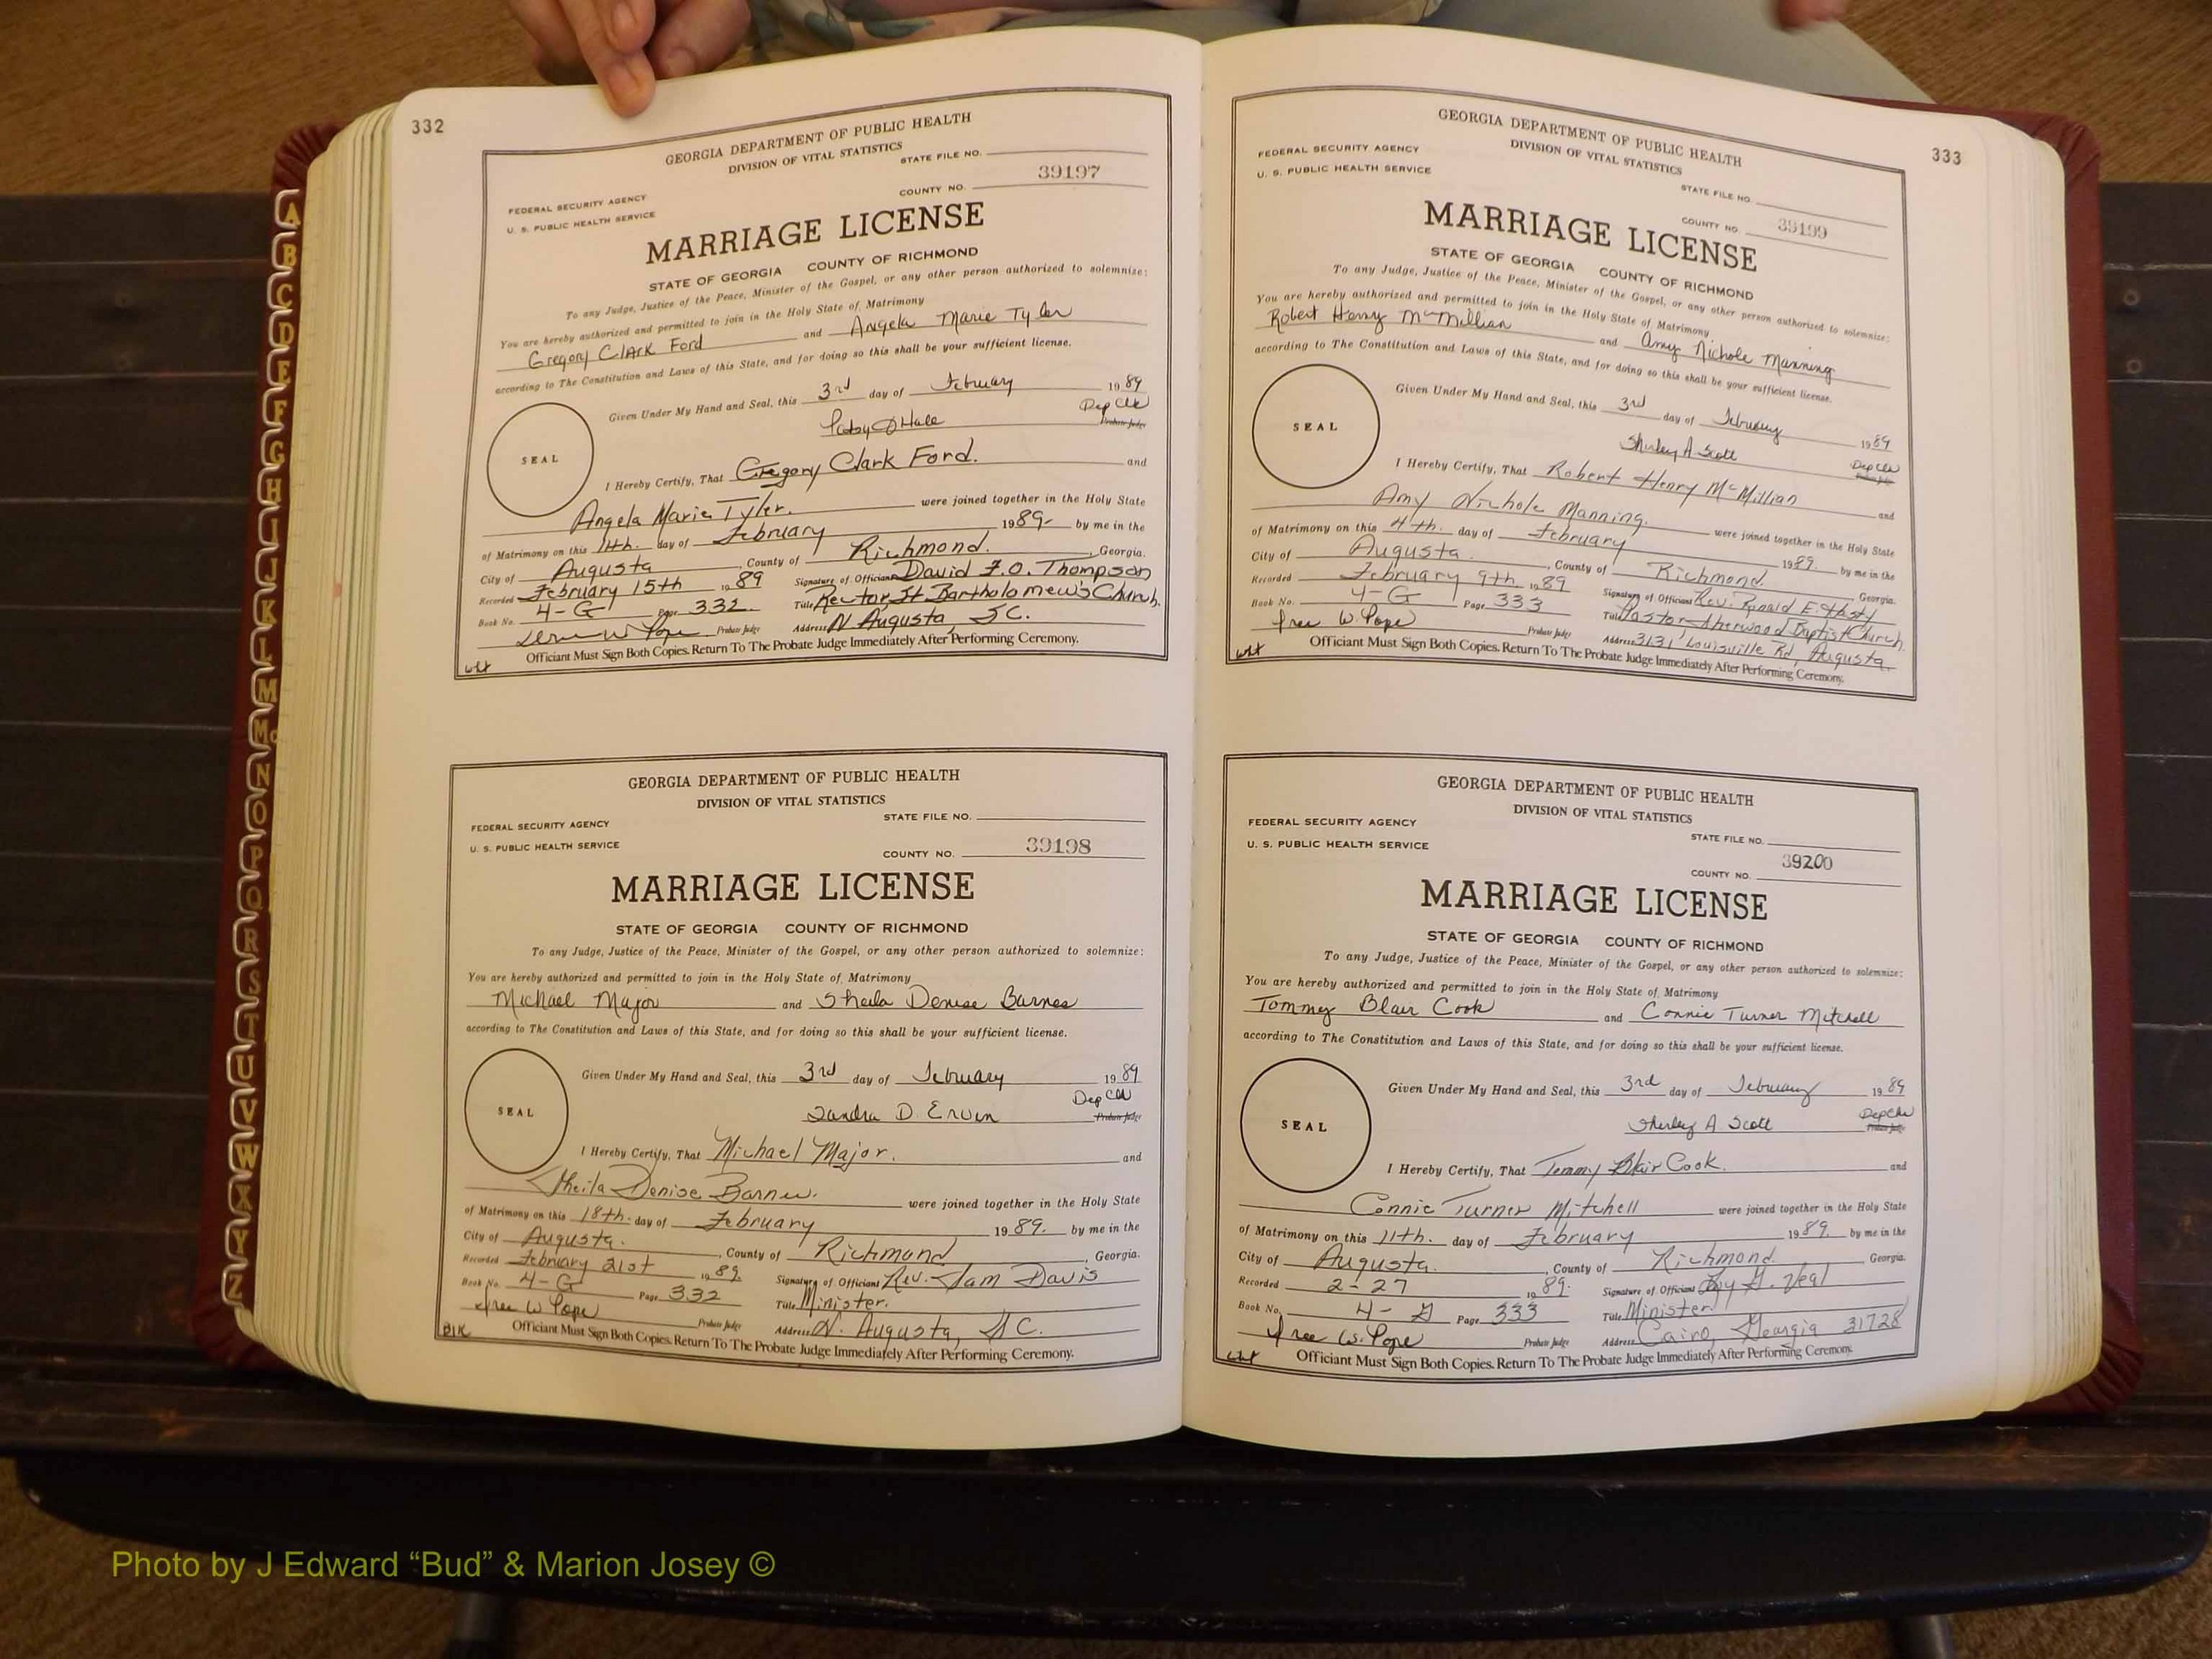 332
GEORGIA DEPARTMENT OF PUBLIC HEALTH
DIVISION OF VITAL STATISTICS
STATE FILE NO.
FEDERAL SECURITY AGENCY
U. S. PUBLIC HEALTH SERVICE
COUNTY NO. 39197
MARRIAGE LICENSE
STATE OF GEORGIA COUNTY OF RICHMOND
To any Judge, Justice of the Peace, Minister of the Gospel, or any other person authorized to solemnize:
You are hereby authorized and permitted to join in the Holy State of Matrimony
Gregory Clark Ford and Angela Marie Tyler
according to The Constitution and Laws of this State, and for doing so this shall be your sufficient license.
Given Under My Hand and Seal, this 3rd day of February 1989
Hale Dep Clk
Probate Judge
SEAL
I Hereby Certify, That Gregory Clark Ford. and
Angela Marie Tyler. were joined together in the Holy State
of Matrimony on this 11th. day of February 1989- by me in the
City of Augusta, County of Richmond., Georgia.
Recorded February 15th 1989 Signature of Officiant David F.O. Thompson
Book No. 4-G Page 332 Title Rector, St. Bartholomew's Church.
W Pope Probate Judge Address N Augusta, SC.
Officiant Must Sign Both Copies. Return To The Probate Judge Immediately After Performing Ceremony.
wht
GEORGIA DEPARTMENT OF PUBLIC HEALTH
DIVISION OF VITAL STATISTICS
STATE FILE NO.
FEDERAL SECURITY AGENCY
U. S. PUBLIC HEALTH SERVICE
COUNTY NO. 39198
MARRIAGE LICENSE
STATE OF GEORGIA COUNTY OF RICHMOND
To any Judge, Justice of the Peace, Minister of the Gospel, or any other person authorized to solemnize:
You are hereby authorized and permitted to join in the Holy State of Matrimony
Michael Major and Sheila Denise Barnes
according to The Constitution and Laws of this State, and for doing so this shall be your sufficient license.
Given Under My Hand and Seal, this 3rd day of February 1989
Sandra D. Ervin Dep Clk
Probate Judge
SEAL
I Hereby Certify, That Michael Major. and
Sheila Denise Barnes. were joined together in the Holy State
of Matrimony on this 18th. day of February 1989. by me in the
City of Augusta., County of Richmond, Georgia.
Recorded February 21st 1989. Signature of Officiant Rev. Sam Davis
Book No. 4-G Page 332 Title Minister.
W Pope Probate Judge Address N. Augusta, SC.
Blk
Officiant Must Sign Both Copies. Return To The Probate Judge Immediately After Performing Ceremony.
333
GEORGIA DEPARTMENT OF PUBLIC HEALTH
DIVISION OF VITAL STATISTICS
FEDERAL SECURITY AGENCY
U. S. PUBLIC HEALTH SERVICE
STATE FILE NO.
COUNTY NO. 39199
MARRIAGE LICENSE
STATE OF GEORGIA COUNTY OF RICHMOND
To any Judge, Justice of the Peace, Minister of the Gospel, or any other person authorized to solemnize:
You are hereby authorized and permitted to join in the Holy State of Matrimony
Robert Henry McMillian and Amy Nichole Manning
according to The Constitution and Laws of this State, and for doing so this shall be your sufficient license.
Given Under My Hand and Seal, this 3rd day of February 1989
Shirley A Scott Dep Clk
SEAL
I Hereby Certify, That Robert Henry McMillian and
Amy Nichole Manning. were joined together in the Holy State
of Matrimony on this 4th. day of February 1989. by me in the
City of Augusta., County of Richmond. Georgia.
Recorded February 9th 1989 Signature of Officiant Rev. Ronald E. Hasty
Book No. 4-G Page 333 Title Pastor Sherwood Baptist Church.
W. Pope Probate Judge Address 3131 Louisville Rd, Augusta.
wht
Officiant Must Sign Both Copies. Return To The Probate Judge Immediately After Performing Ceremony.
GEORGIA DEPARTMENT OF PUBLIC HEALTH
DIVISION OF VITAL STATISTICS
FEDERAL SECURITY AGENCY
U. S. PUBLIC HEALTH SERVICE
STATE FILE NO.
COUNTY NO. 39200
MARRIAGE LICENSE
STATE OF GEORGIA COUNTY OF RICHMOND
To any Judge, Justice of the Peace, Minister of the Gospel, or any other person authorized to solemnize:
You are hereby authorized and permitted to join in the Holy State of Matrimony
Tommy Blair Cook and Connie Turner Mitchell
according to The Constitution and Laws of this State, and for doing so this shall be your sufficient license.
Given Under My Hand and Seal, this 3rd day of February 1989
Shirley A Scott Dep Clk
Probate Judge
SEAL
I Hereby Certify, That Tommy Blair Cook. and
Connie Turner Mitchell were joined together in the Holy State
of Matrimony on this 11th. day of February 1989. by me in the
City of Augusta., County of Richmond., Georgia.
Recorded 2-27 1989. Signature of Officiant
Book No. 4-G Page 333 Title Minister.
W. Pope Probate Judge Address Cairo, Georgia 31728
wht
Officiant Must Sign Both Copies. Return To The Probate Judge Immediately After Performing Ceremony.
A
B
C
D
E
F
G
H
I
J
K
L
M
Mc
N
O
P
Q
R
S
T
U
V
W
X
Y
Z
Photo by J Edward “Bud” & Marion Josey ©